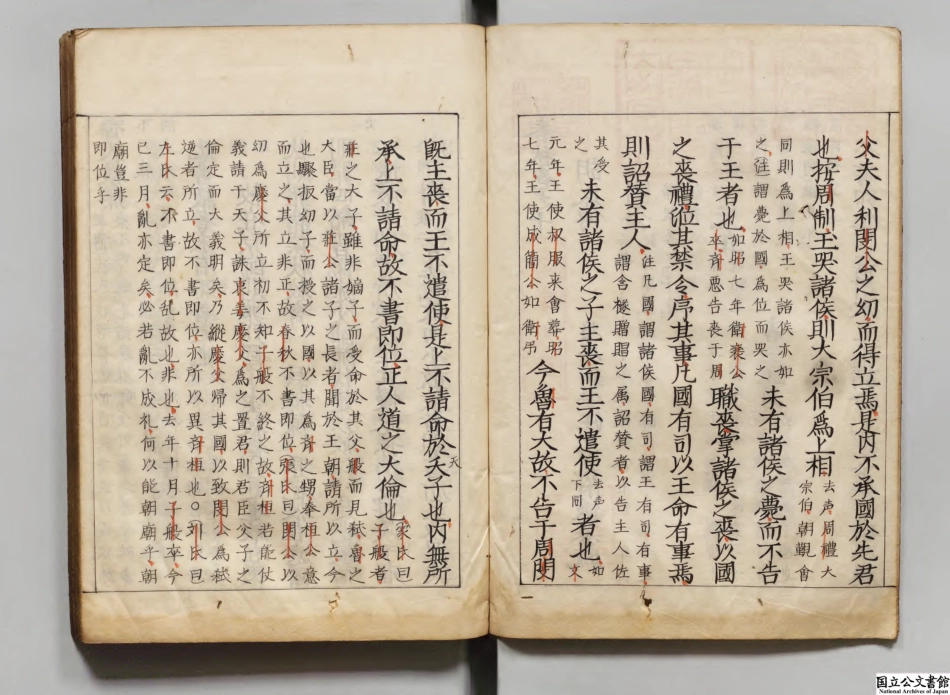 父夫人利閔公之幼而得立焉是内不承國於先君
也按周制王哭諸侯則大宗伯爲上相去声周禮大宗伯朝覲會
同則爲上相王哭諸侯亦如之註謂薨於國爲位而哭之未有諸侯之薨而不告
于王者也如昭七年衛襄公卒斉悪告喪于周職喪掌諸侯之喪以國
之喪禮涖其禁令序其事凡國有司以王命有事焉
則詔賛主人注凡國謂諸侯國有司謂王有司有事謂含襚赠賵之属詔賛者以告主人佐
其受之未有諸侯之子主喪而王不遣使去声下同者也如文
元年王使叔服来會葬昭七年王使成簡公如衛弔今魯有大故不告于周閔
既主喪而王不遣使是上不請命於天子也内無所
天
承上不請命故不書即位正人道之大倫也家氏曰子般者
莊之大子雖非嫡子而受命於其父般而見弑魯之
大臣當以莊公諸子之長者聞於王朝請所以立今
也驟扳幼子而授之以國以其爲斉之甥奉桓公意
而立之其立非正故春秋不書即位張氏曰閔公以
幼爲慶父所立初不知子般不終之故斉桓若能仗
義請于天子誅哀姜慶父爲之置君則君臣父子之
倫定而大義明矣乃縱慶父歸其國以致閔公爲弑
逆者所立故不書即位亦所以異斉桓也○刘氏曰
左氏云不書即位乱故也非也去年十月子般卒今
已三月乱亦定矣必若亂不成礼何以能朝廟乎朝
廟豈非
即位乎
国立公文書館
National Archives of Japan